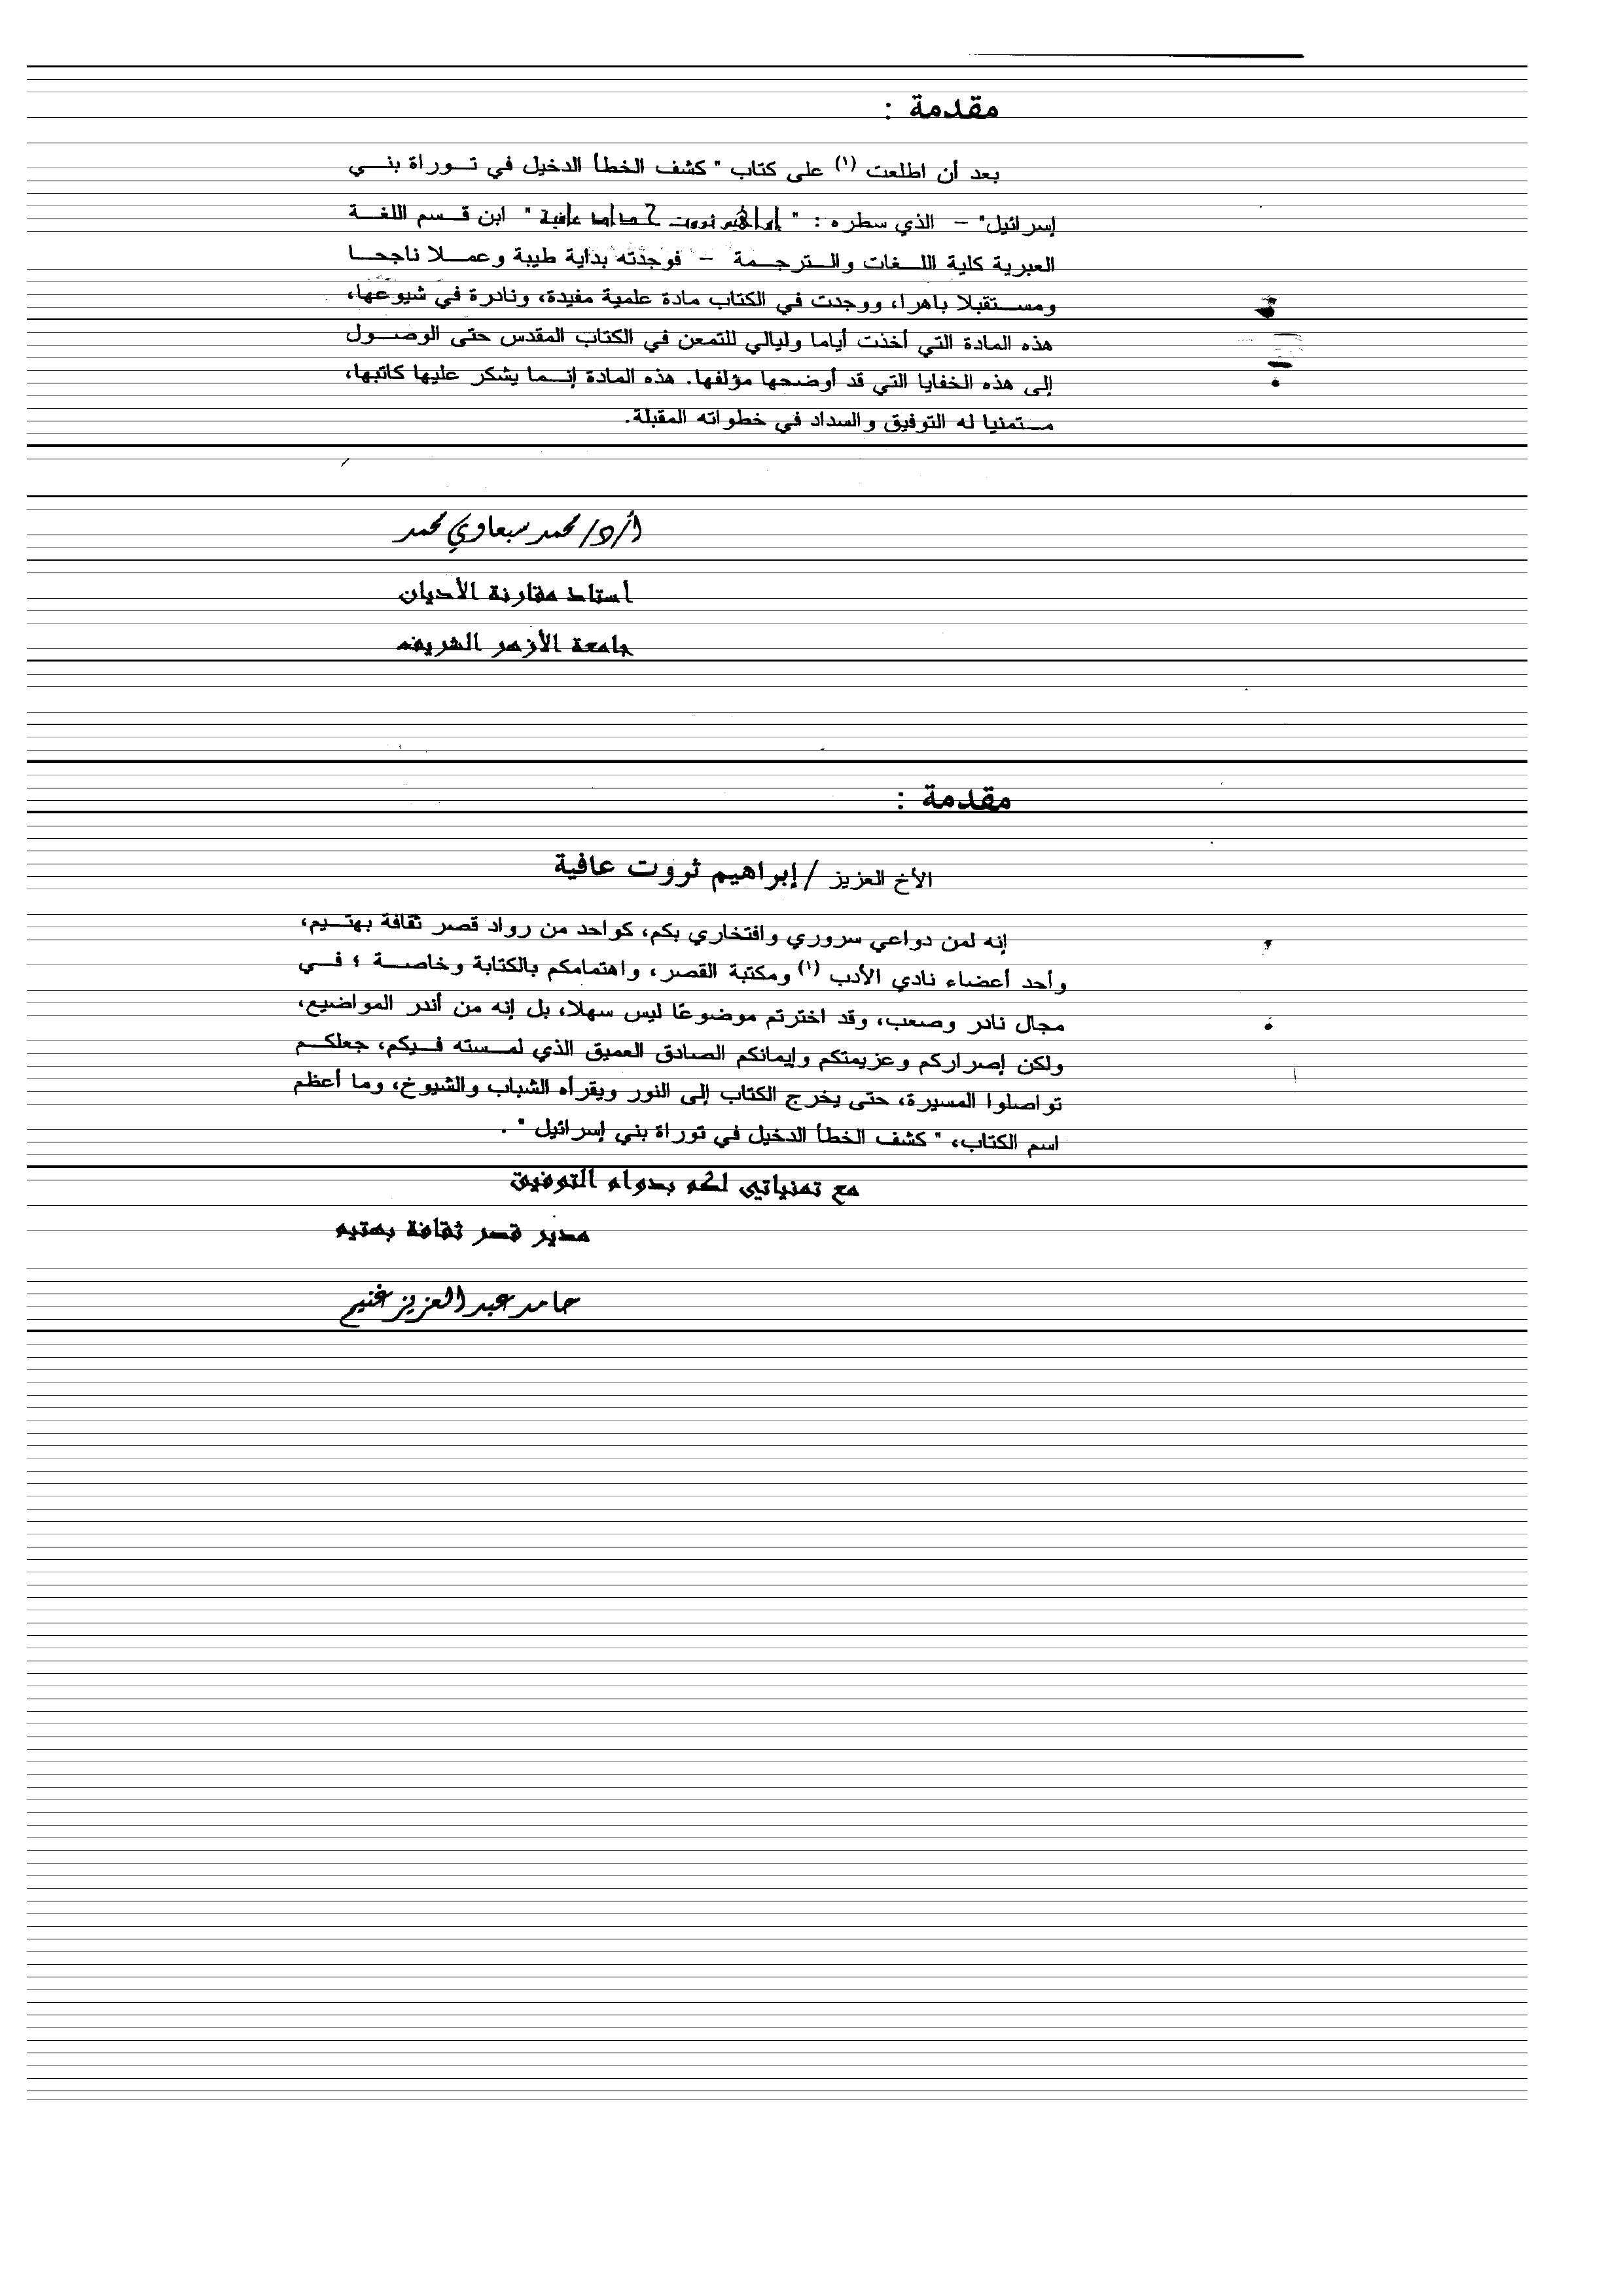 مقدمة :
بعد أن اطلعت (١) على كتاب " كشف الخطأ الدخيل في تــوراة بنــي
إسرائيل" – الذي سطره : " إبراهيم ثروت عافية " ابن قــسم اللغــة
العبرية كلية اللــغات والــترجــمة – فوجدته بداية طيبة وعمــلا ناجحــا
ومســتقبلا باهرا، ووجدت في الكتاب مادة علمية مفيدة، ونادرة في شيوعها،
هذه المادة التي أخذت أياما وليالي للتمعن في الكتاب المقدس حتى الوصــول
إلى هذه الخفايا التي قد أوضحها مؤلفها. هذه المادة إنــما يشكر عليها كاتبها،
مــتمنيا له التوفيق والسداد في خطواته المقبلة.
أ/د/ محمد سبعاوي محمد
أستاذ مقارنة الأديان
جامعة الأزهر الشريف
مقدمة :
الأخ العزيز / إبراهيم ثروت عافية
إنه لمن دواعي سروري وافتخاري بكم، كواحد من رواد قصر ثقافة بهتــيم،
وأحد أعضاء نادي الأدب (١) ومكتبة القصر، واهتمامكم بالكتابة وخاصــة ؛ فــي
مجال نادر وصعب، وقد اخترتم موضوعًا ليس سهلا، بل إنه من أندر المواضيع،
ولكن إصراركم وعزيمتكم وإيمانكم الصادق العميق الذي لمــسته فــيكم، جعلكــم
تواصلوا المسيرة، حتى يخرج الكتاب إلى النور ويقرأه الشباب والشيوخ، وما أعظم
اسم الكتاب، " كشف الخطأ الدخيل في توراة بني إسرائيل " .
مع تمنياتي لكم بدوام التوفيق
مدير قصر ثقافة بهتيم
حامد عبد العزيز غنيم